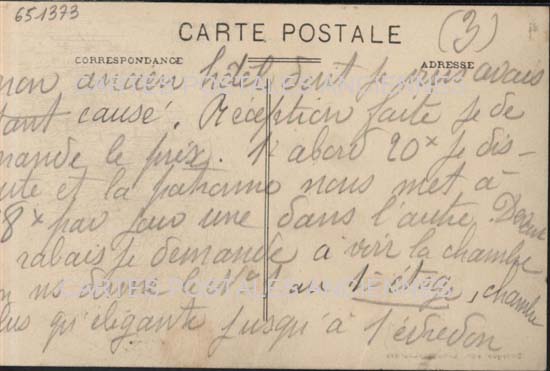 651373
CARTE POSTALE
(3)
CORRESPONDANCE
ADRESSE
mon ancien hôtel dont je vous avais
tant causé. Réception faite je de
mande le prix. D'abord 20x je dis-
cute et la patronne nous met à
8x par jour une dans l'autre. Devant
rabais je demande à voir la chambre
on ns donne le n° 1 au 1er étage, chambre
plus qu'élégante jusqu'à l'édredon
CARTES POSTALES ANCIENNES
CARTES POSTALES ANCIENNES